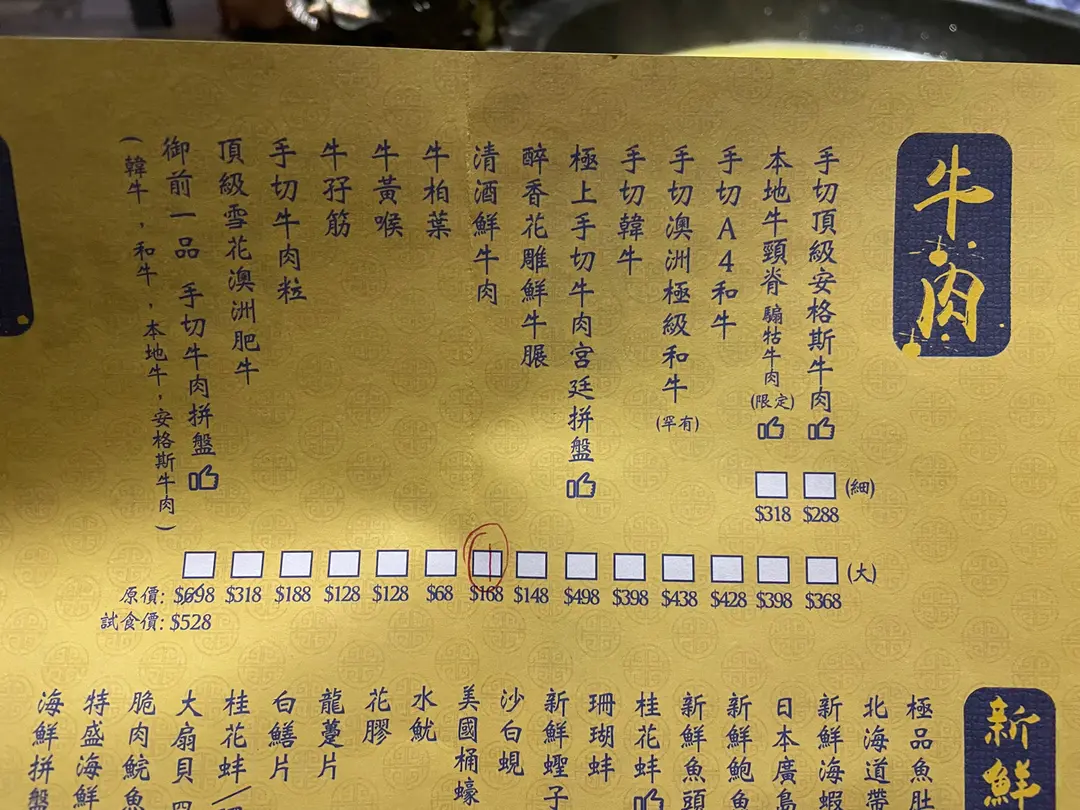 牛肉
手切頂級安格斯牛肉
本地牛頸脊 騸牯牛肉 (限定)
手切A4和牛
手切澳洲極級和牛 (罕有)
手切韓牛
極上手切牛肉宮廷拼盤
醉香花雕鮮牛𦟌
清酒鮮牛肉
牛柏葉
牛黃喉
牛孖筋
手切牛肉粒
頂級雪花澳洲肥牛
御前一品 手切牛肉拼盤
(韓牛，和牛，本地牛，安格斯牛肉)
$318 $288 (細)
(大)
原價: $698 $318 $188 $128 $128 $68 $168 $148 $498 $398 $438 $428 $398 $368
試食價: $528
新鮮
極品魚肚
北海道帶
新鮮海蝦
日本廣島
新鮮鮑魚
新鮮魚頭
桂花蚌
珊瑚蚌
新鮮蟶子
沙白蜆
美國桶蠔
水魷
花膠
龍躉片
白鱔片
桂花蚌
大扇貝
脆肉鯇魚
特盛海鮮
海鮮拼盤